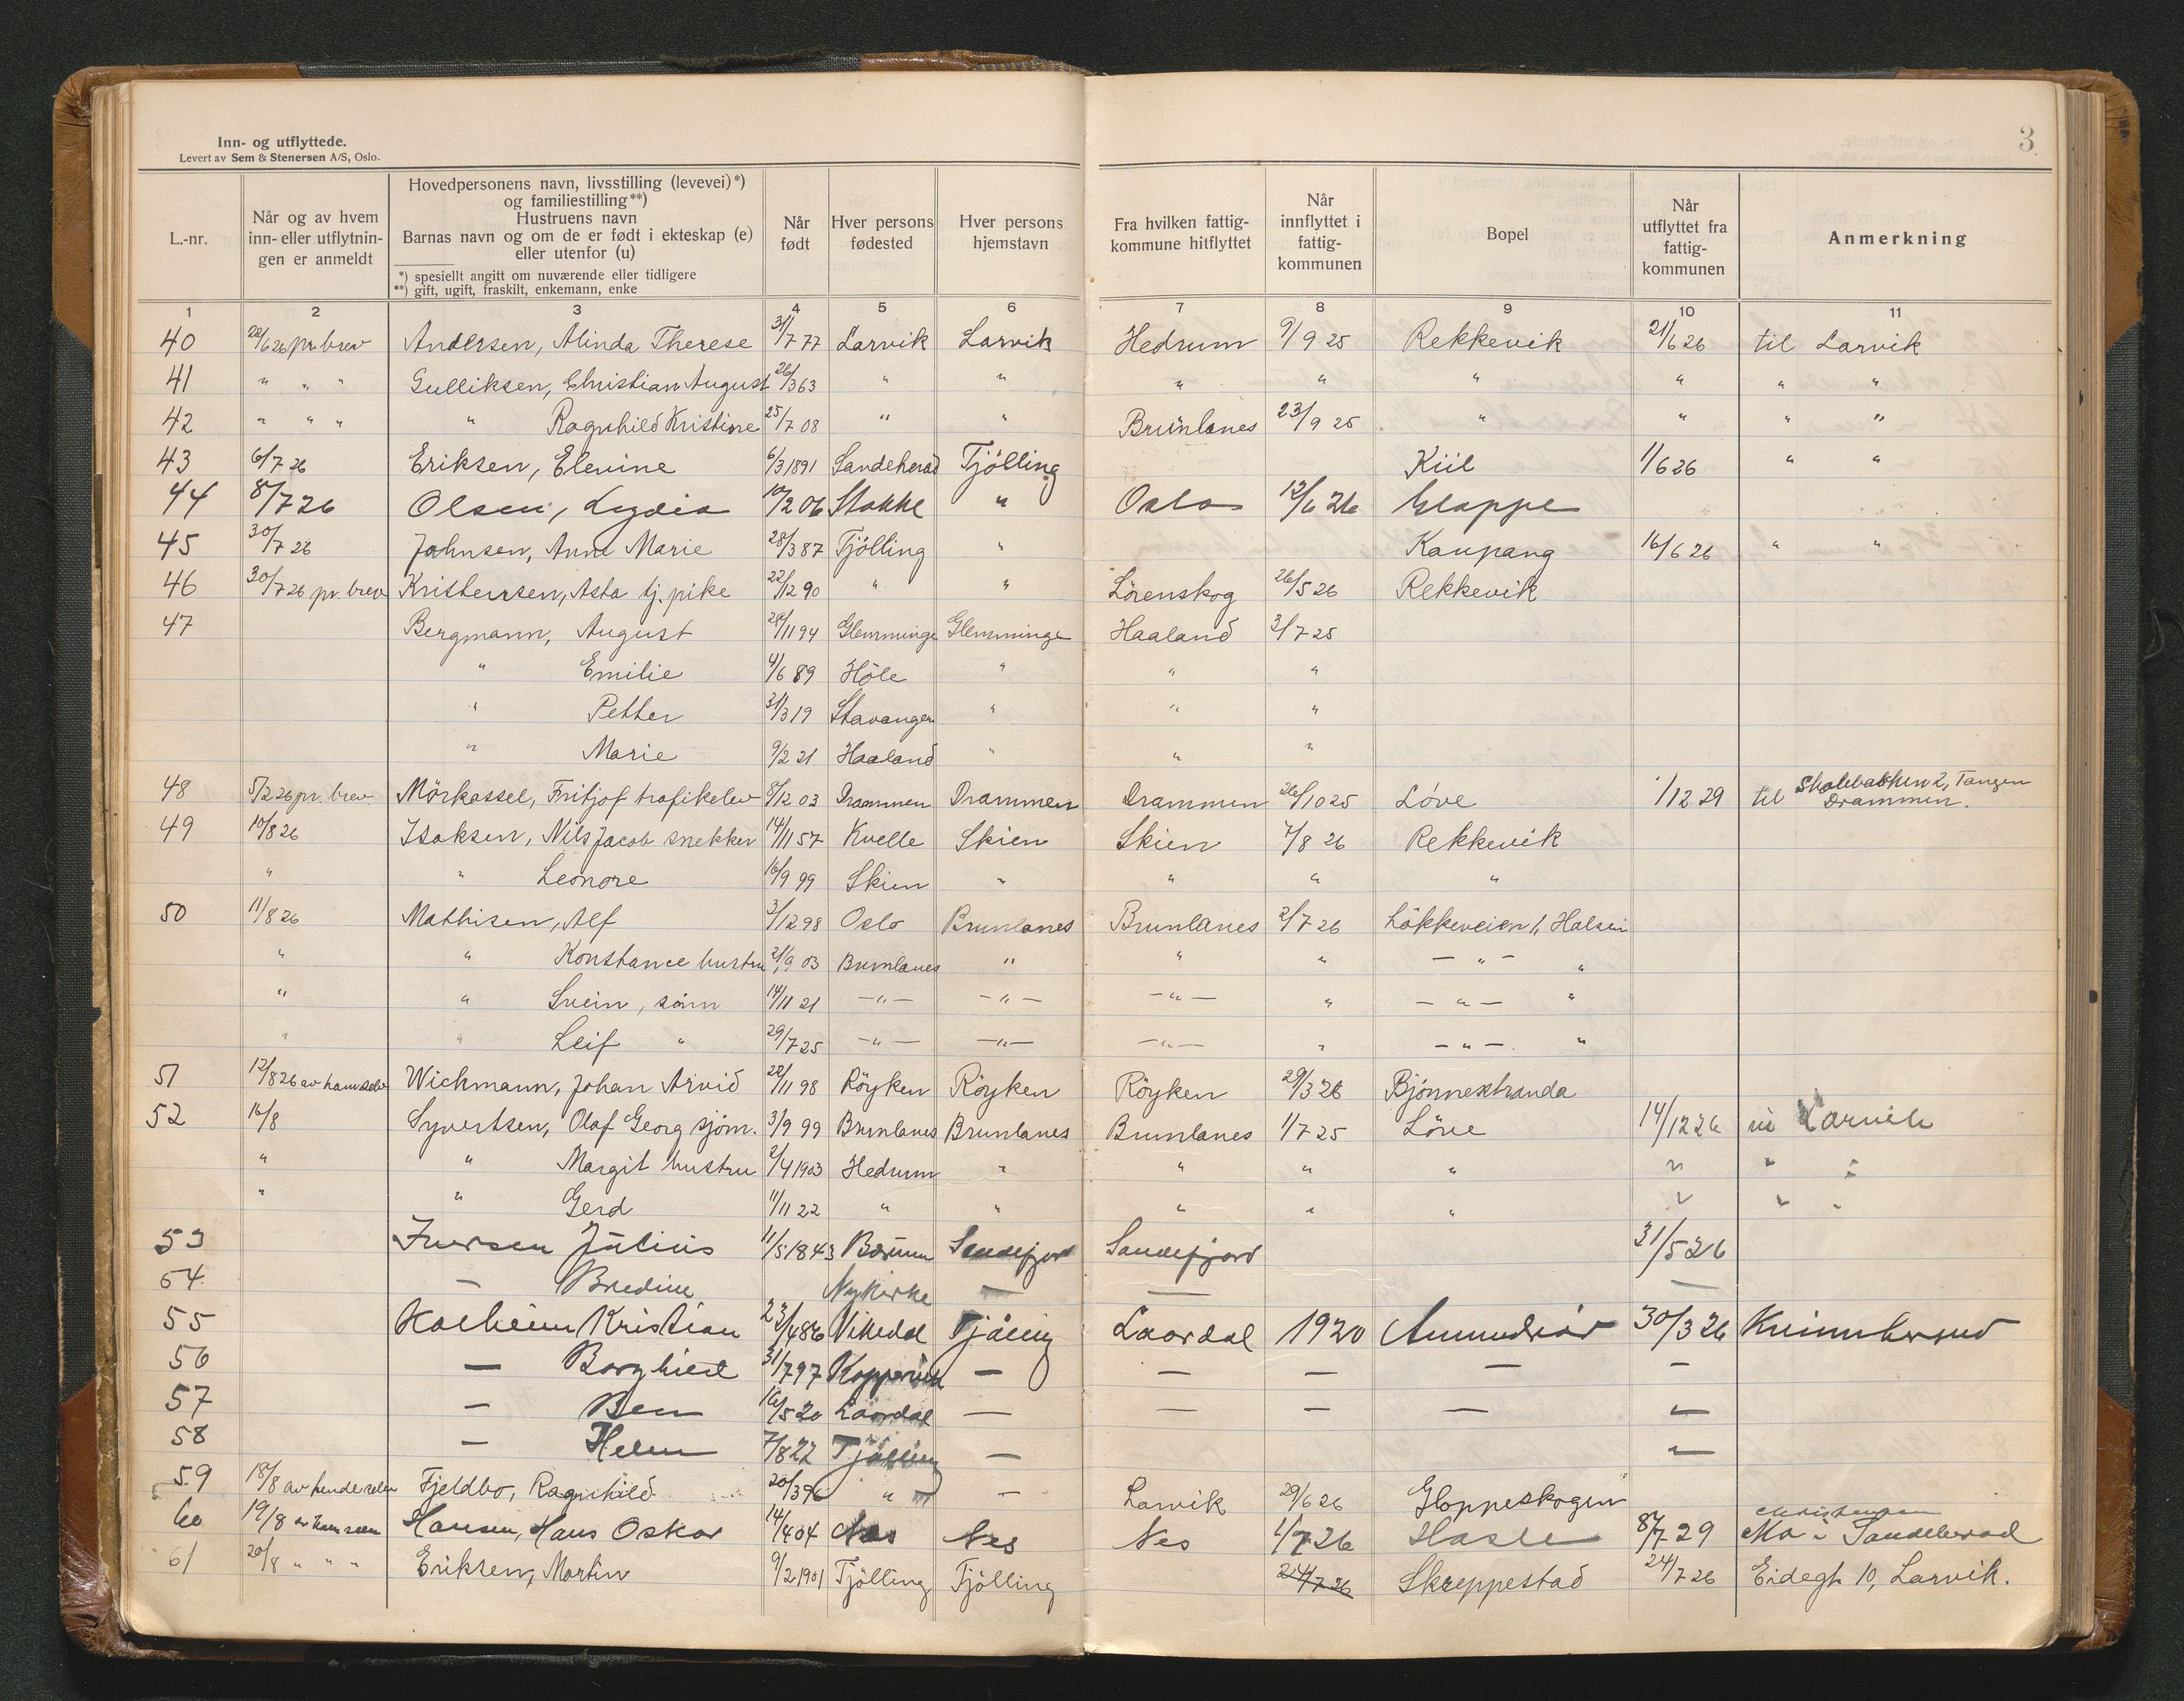 Inn- og utflyttede.
Levert av Sem & Stenersen A/S, Oslo.
3
L.-nr. | Når og av hvem inn- eller utflytnin-gen er anmeldt | Hovedpersonens navn, livsstilling (levevei)*) og familiestilling**) Hustruens navn Barnas navn og om de er født i ekteskap (e) eller utenfor (u) *) spesiellt angitt om nuværende eller tidligere **) gift, ugift, fraskilt, enkemann, enke | Når født | Hver persons fødested | Hver persons hjemstavn | Fra hvilken fattig-kommune hitflyttet | Når innflyttet i fattig-kommunen | Bopel | Når utflyttet fra fattig-kommunen | Anmerkning
1 2 3 4 5 6 7 8 9 10 11
40 28/6 26 pr. brev Andersen, Alinda Therese 31/7 77 Larvik Larvik Hedrum 9/9 25 Rekkevik 21/6 26 til Larvik
41 " " " Gulliksen, Christian August 26/3 63 " " " " " " " "
42 " " " " Ragnhild Kristine 25/7 08 " " Brunlanes 23/9 25 " " " "
43 6/7 26 Eriksen, Elevine 6/3 1891 Sandeherad Tjölling Kiil 1/6 26 " "
44 8/7 26 Olsen, Lydia 10/2 06 Stokke " Oslo 12/6 26 Gloppe
45 30/7 26 Johnsen, Anne Marie 28/3 87 Tjölling " Kaupang 16/6 26 " "
46 30/7 26 pr. brev Kristensen, Asta tj. pike 22/12 90 " " Lörenskog 26/5 26 Rekkevik
47 Bergmann, August 28/11 94 Glemminge Glemminge Haaland 3/7 25
" Emilie 4/6 89 Höle " " "
" Petter 31/3 19 Stavanger " " "
" Marie 9/2 21 Haaland " " "
48 5/2 26 pr. brev Mörkassel, Fritjof trafikelev 8/12 03 Drammen Drammen Drammen 26/10 25 Löve 1/12 29 til Skolebakken 2, Tangen
Drammen.
49 10/8 26 Isaksen, Nils Jacob snekker 14/11 57 Kvelle Skien Skien 7/8 26 Rekkevik
" " Leonore 16/9 99 Skien " " " "
50 11/8 26 Mathisen, Alf 3/12 98 Oslo Brunlanes Brunlanes 2/7 26 Lökkeveien 1, Halsen
" " Konstance hustru 21/9 03 Brunlanes " " " – " – "
" " Svein, sönn 14/11 21 –"– –"– –"– " – " – "
" " Leif " 29/7 25 –"– –"– –"– " – " – "
51 12/8 26 av ham selv Wickmann, Johan Arvid 28/11 98 Röyken Röyken Röyken 29/3 26 Bjönnestranda
52 16/8 Syvertsen, Olaf Georg sjöm. 3/9 99 Brunlanes Brunlanes Brunlanes 1/7 25 Löve 14/12 26 Larvik
" " Margit hustru 2/4 1903 Hedrum " " " " " " "
" " Gerd 11/11 22 " " " " " " " "
53 Iversen Julius 11/5 1843 Bærum Sandefjord Sandefjord 31/5 26
54 — Bredine Nykirke — — —
55 Kristian 23/4 86 Vikedal Tjölling Laardal 1920 Amundröd 30/3 26
56 — Borghild 31/7 97 Kopperud — — — — —
57 — Ben 16/5 20 Laardal — — — — —
58 — Helen 7/8 22 Tjölling — —
59 18/8 av hende selv Fjeldbo, Ragnhild 20/3 96 " — Larvik 29/6 26 Gloppeskogen
60 19/8 av ham selv Hansen, Hans Oskar 14/4 04 Nes Nes Nes 1/7 26 Hasle 8/7 29 Mo i Sandeherad
Christensen
61 20/8 " " " Eriksen, Martin 9/2 1901 Tjölling Tjölling 24/7 26 Skreppestad 24/7 26 Eidegt. 10, Larvik.